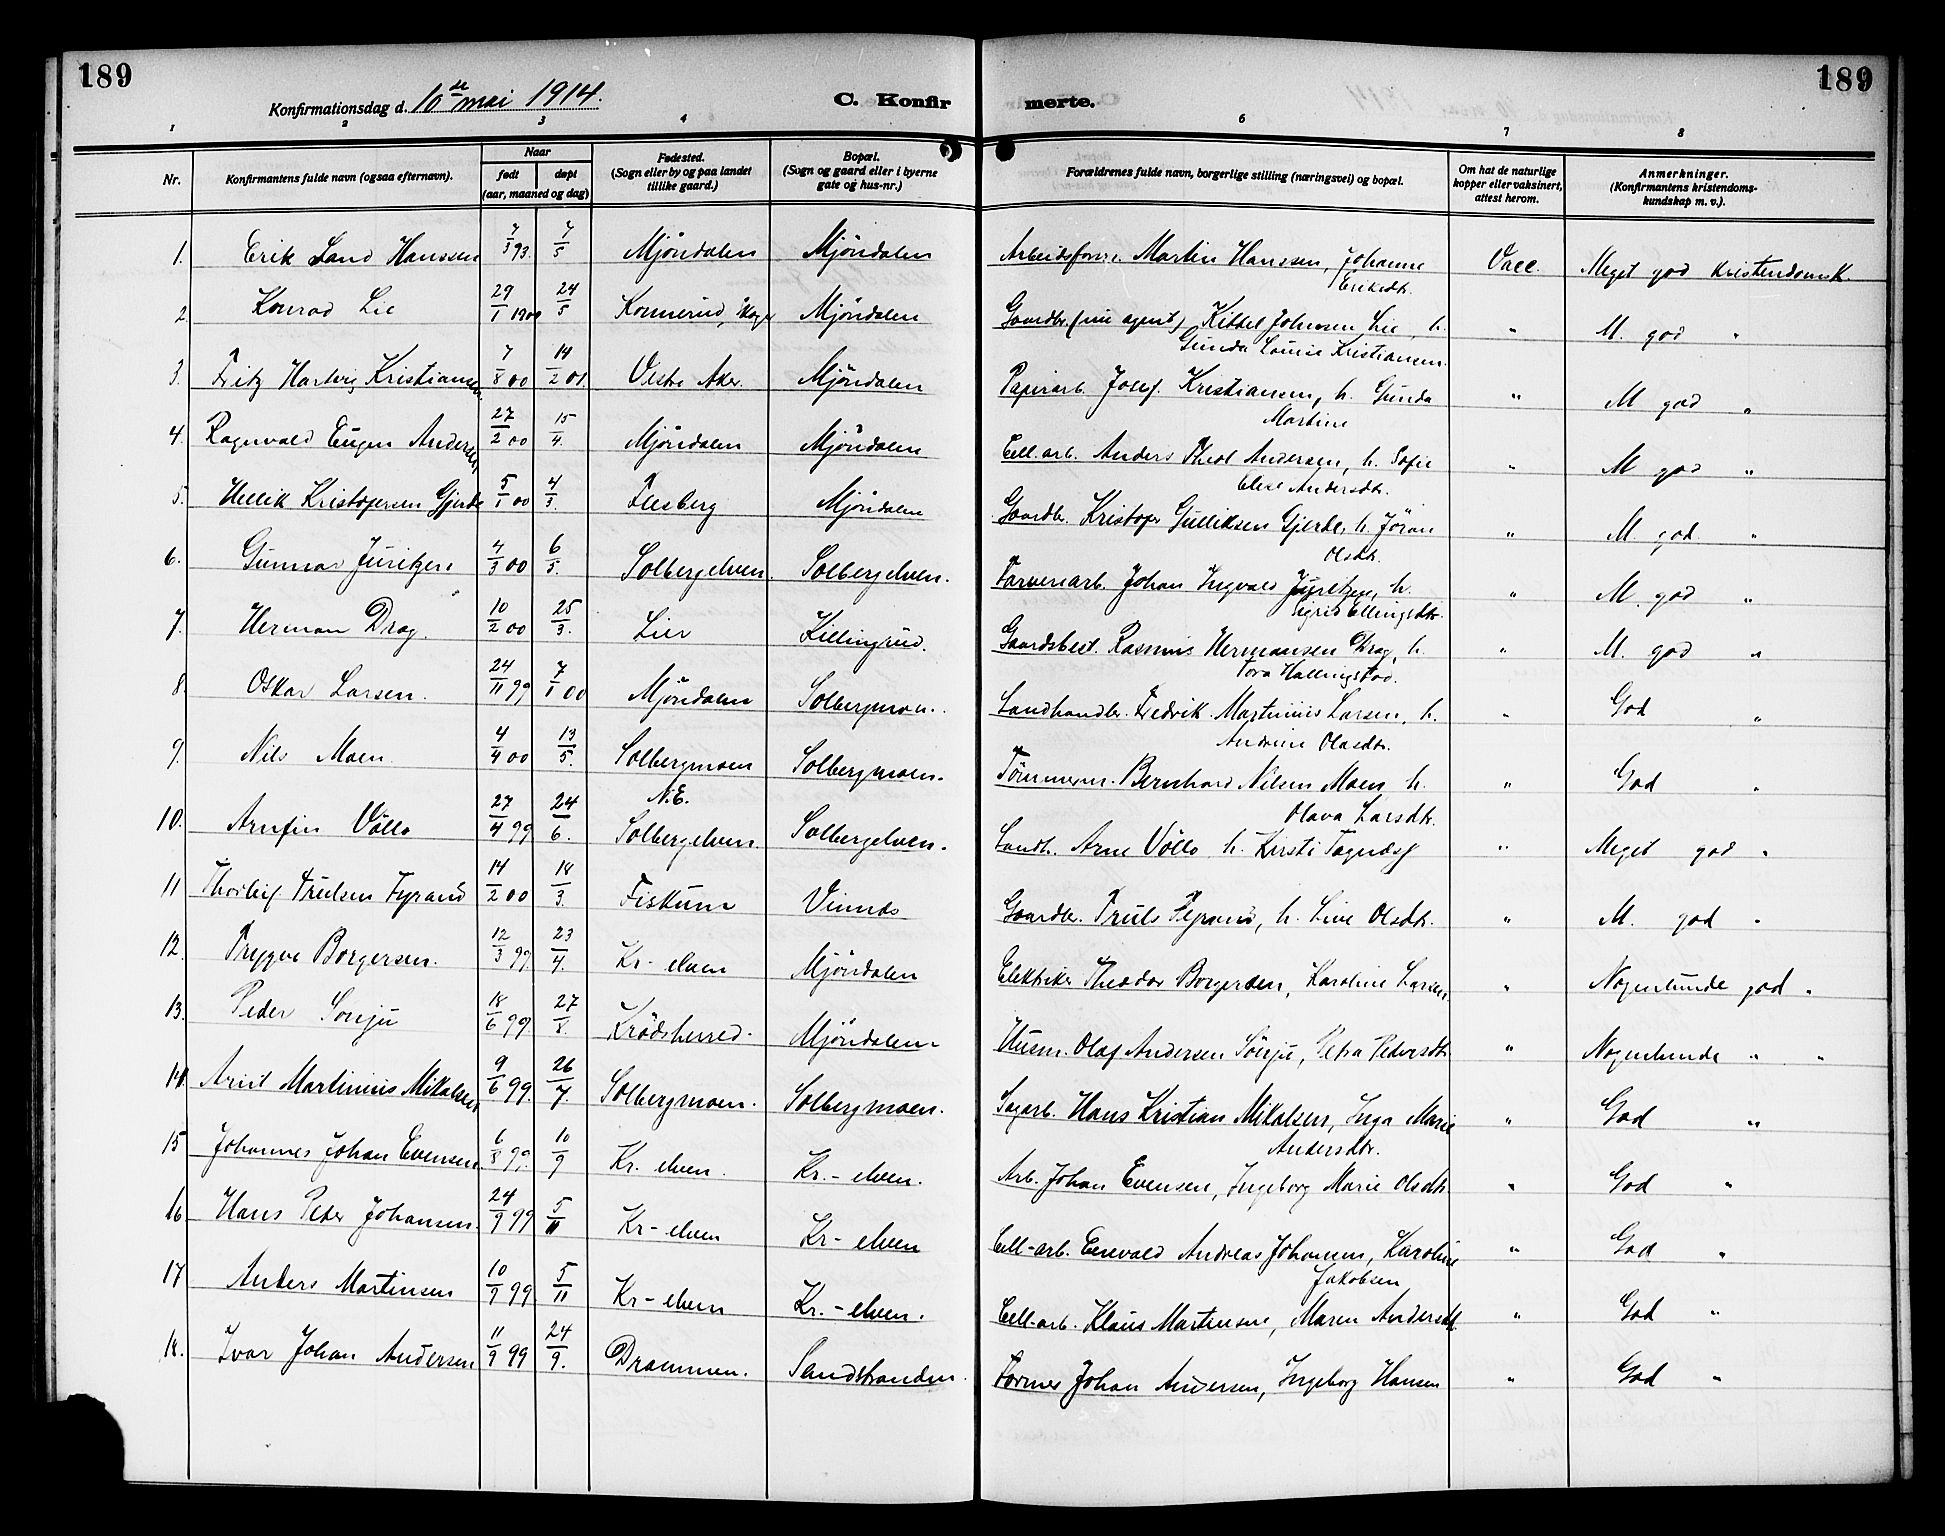 189
189
Konfirmationsdag d. 10de mai 1914.
C. Konfir
merte.
1 2 3 4 6 7 8
Nr.
Konfirmantens fulde navn (ogsaa efternavn).
Naar
født
døpt
(aar, maaned og dag)
Fødested.
(Sogn eller by og paa landet
tillike gaard.)
Bopæl.
(Sogn og gaard eller i byerne
gate og hus-nr.)
Forældrenes fulde navn, borgerlige stilling (næringsvei) og bopæl.
Om hat de naturlige
kopper eller vaksinert,
attest herom.
Anmerkninger.
(Konfirmantens kristendoms-
kundskap m. v.).
1. Erik Land Hanssen 7/3 93. 7/5 Mjöndalen Mjöndalen Arbeidsform. Martin Hanssen, Johanne Vacc. Meget god kristendomsk.
Eriksdtr.
2. Konrad Lie 29/1 1900 24/5 Konnerud, Skoger Mjöndalen Gaardbr. (nu agent) Kittel Johnsen Lie, h. " M. god "
Gunda Louise Kristiansen.
3. Fritz Hartvig Kristiansen 7/8 00 14/2 01. Vestre Aker. Mjöndalen Papirarb. Josef. Kristiansen, h. Gunda " M god "
Martine
4. Ragnvald Eugen Andersen 27/2 00 15/4. Mjöndalen Mjöndalen Cell. arb. Anders Theol Andersen, h. Sofie " M god "
Elise Andersdtr.
5. Hellik Kristofersen Gjerde 5/1 00 4/3. Flesberg Mjöndalen Gaardbr. Kristofer Gulliksen Gjerde, h. Jöran " M god. "
Olsdtr.
6. Gunnar Juritzen 4/3 00 6/5. Solbergelven. Solbergelven. Farveriarb. Johan Ingvald Juritzen, h. " M. god "
Sigrid Ellingsdtr.
7. Herman Drag. 10/2 00 25/3. Lier Killingrud. Gaardsbest. Rasmus Hermansen Drag, h. " M. god "
Tora Hallingstad.
8. Oskar Larsen. 24/11 99 7/1 00 Mjöndalen Solbergmoen. Landhandler. Fredrik Martinius Larsen, h. " God "
Andrine Olasdtr.
9. Nils Moen 4/4 00 13/5. Solbergmoen Solbergmoen. Tömmerm. Bernhard Nilsen Moen, h. " God "
Olava Larsdtr.
10. Arnfin Völlo 27/4 99 24/6. N.E. Solbergelven. Solbergelven. Landh. Arne Völlo, h. Kirsti " Meget god "
11 Thorleif Trulsen Fyrand 14/2 00 18/3. Fiskum Vinnes Gaardbr. Truls Fyrand, h. Live Olsdtr. " M. god "
12. Trygve Borgersen. 12/3 99. 23/4. Kr- elven Mjöndalen Elektriker Theodor Borgersen, Karoline Larsen. " Nogenlunde god "
13. Peder Sönju 18/6 99. 27/8. Krödsherred. Mjöndalen Husm. Olaf Andersen Sönju, Petra Pedersdtr. " Nogenlunde " "
14. Arnt Martinius Mikalsen 9/6 99. 26/7. Solbergmoen. Solbergmoen. Sagarb. Hans Kristian Mikalsen, Inga Marie " God "
Andersdtr.
15 Johannes Johan Evensen 6/8 99. 10/9 Kr. elven. Kr.- elven. Arb. Johan Evensen, Ingeborg Marie Olsdtr. " God "
16 Hans Peter Johansen. 24/9 99 5/11 Kr- elven Kr- elven Cell-arb. Enevald Andreas Johansen, Karoline " God "
Jakobsen
17 Anders Martinsen 10/9 99 5/11 Kr- elven Kr.- elven. Cell-arb. Klaus Martinsen, Maren Andersdtr. " God "
18. Ivar Johan Andersen 11/9 99 24/9. Drammen. Sandstranden. Former Johan Andersen, Ingeborg Hansen " God "